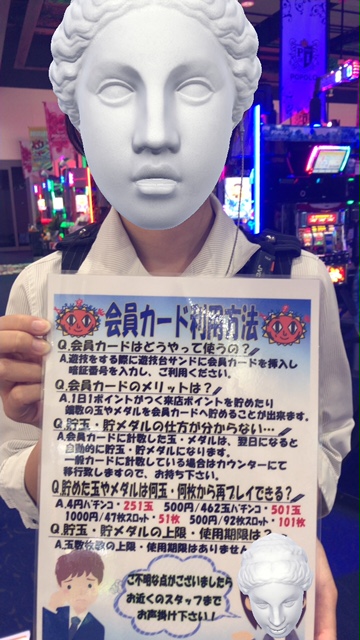 会員カード利用方法
Q.会員カードはどうやって使うの？
A.遊技をする際に遊技台サンドに会員カードを挿入し
暗証番号を入力し、ご利用ください。
Q.会員カードのメリットは？
A.1日1ポイントがつく来店ポイントを貯めたり
端数の玉やメダルを会員カードへ貯めることが出来ます。
Q.貯玉・貯メダルの仕方が分からない…
A.会員カードに計数した玉・メダルは、翌日になると
自動的に貯玉・貯メダルになります。
一般カードに計数している場合はカウンターにて
移行致しますので、お持ち下さい。
Q.貯めた玉やメダルは何玉・何枚から再プレイできる？
A.4円パチンコ・251玉 500円/462玉パチンコ・501玉
1000円/47枚スロット・51枚 500円/92枚スロット・101枚
Q.貯玉・貯メダルの上限・使用期限は？
A.玉数枚数の上限・使用期限はありません
ご不明な点がございましたら
お近くのスタッフまで
お声掛け下さい！